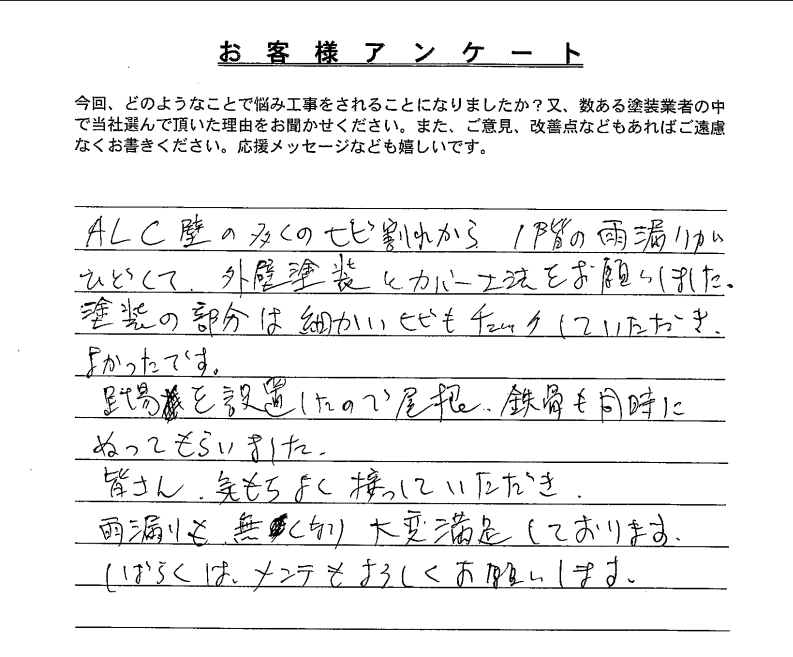 お客様アンケート
今回、どのようなことで悩み工事をされることになりましたか？又、数ある塗装業者の中
で当社選んで頂いた理由をお聞かせください。また、ご意見、改善点などもあればご遠慮
なくお書きください。応援メッセージなども嬉しいです。
ALC壁の多くのヒビ割れから 1階の雨漏りが
ひどくて、外壁塗装とカバー工法をお願いしました。
塗装の部分は細かいヒビもチェックしていただき、
よかったです。
足場を設置したので屋根、鉄骨も同時に
ぬってもらいました。
皆さん、気もちよく接っしていただき、
雨漏りも、無くなり大変満足しております。
しばらくは、メンテもよろしくお願いします。